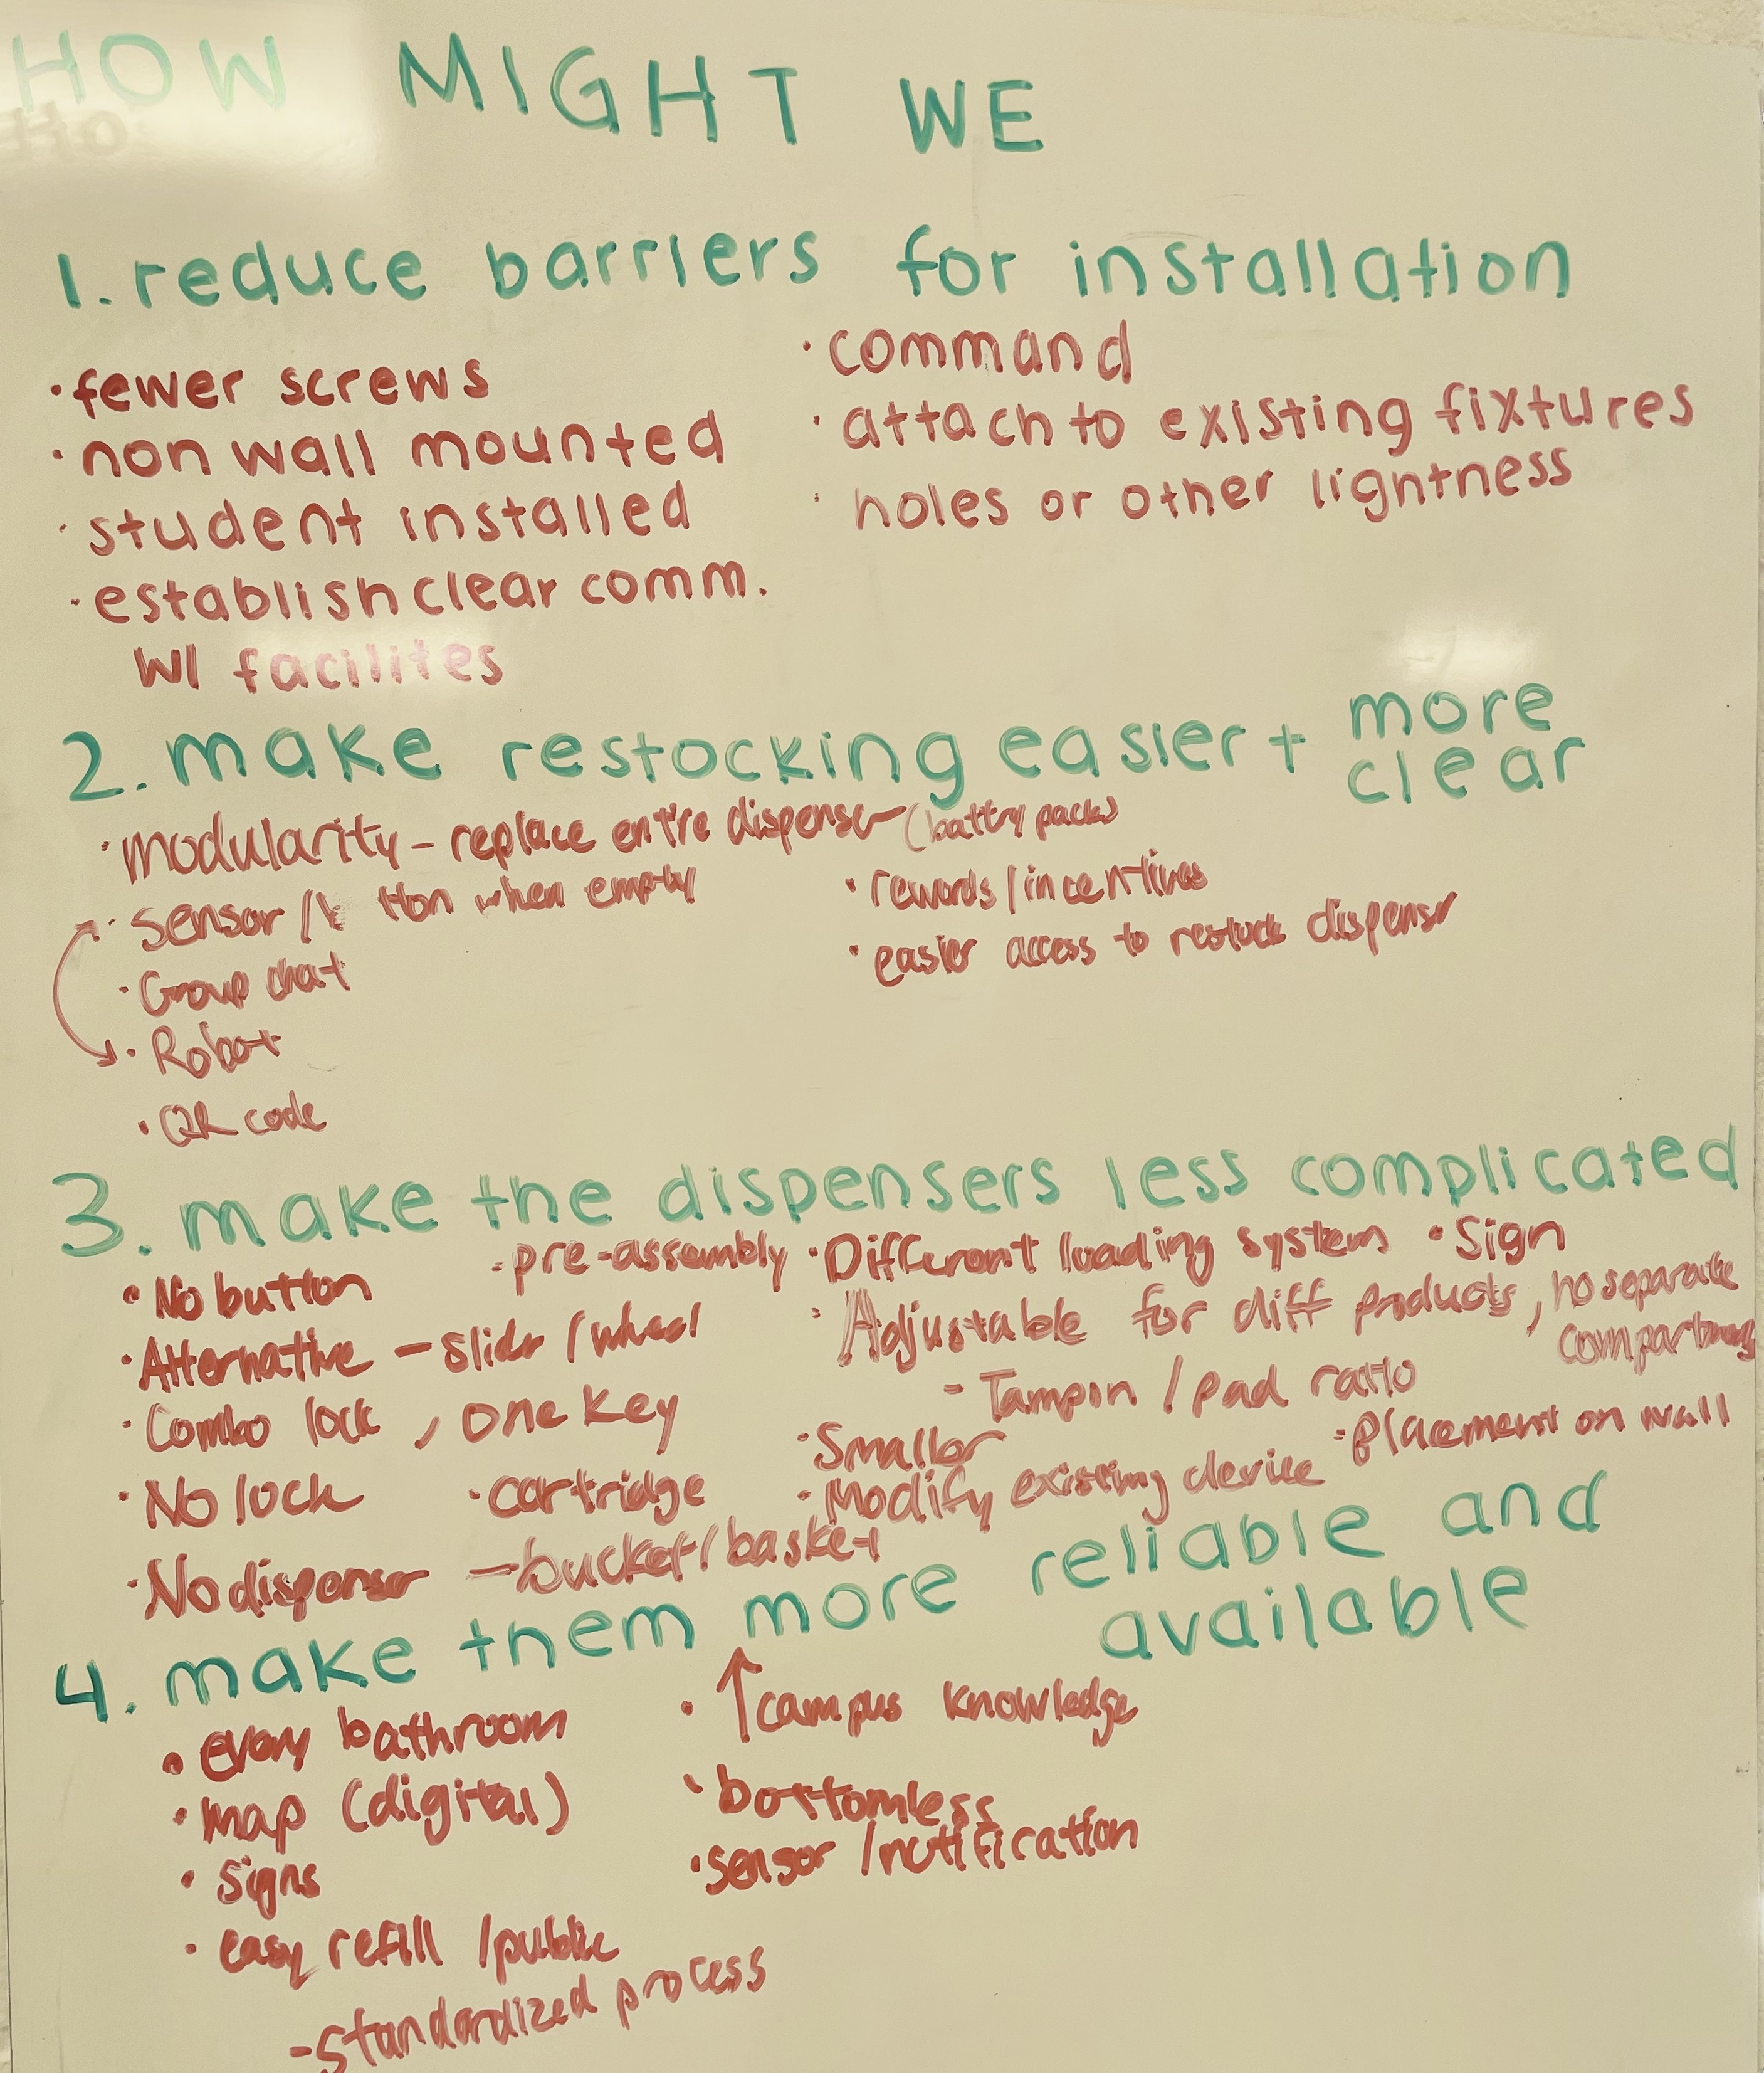 HOW MIGHT WE
1. reduce barriers for installation
· fewer screws
· non wall mounted
· student installed
· establish clear comm.
w/ facilites
· command
· attach to existing fixtures
· holes or other lightness
2. make restocking easier + more
clear
· modularity - replace entire dispenser (battry packs)
· Sensor / tton when empty
· Group chat
· Robot
· QR code
· rewards/incentives
· easier access to restock dispenser
3. make the dispensers less complicated
· No button
· Alternative - slider / wheel
· Combo lock, one key
· No lock
· No dispenser - bucket/basket
- pre-assembly
· cartridge
· Different loading system
· Sign
· Adjustable for diff products, no separate
compartments
- Tampon / pad ratio
· Smaller
· Placement on wall
· Modify existing device
4. make them more reliable and
available
· every bathroom
· map (digital)
· signs
· easy refill / public
- standardized process
· ↑ campus knowledge
· bottomless
· sensor / notification